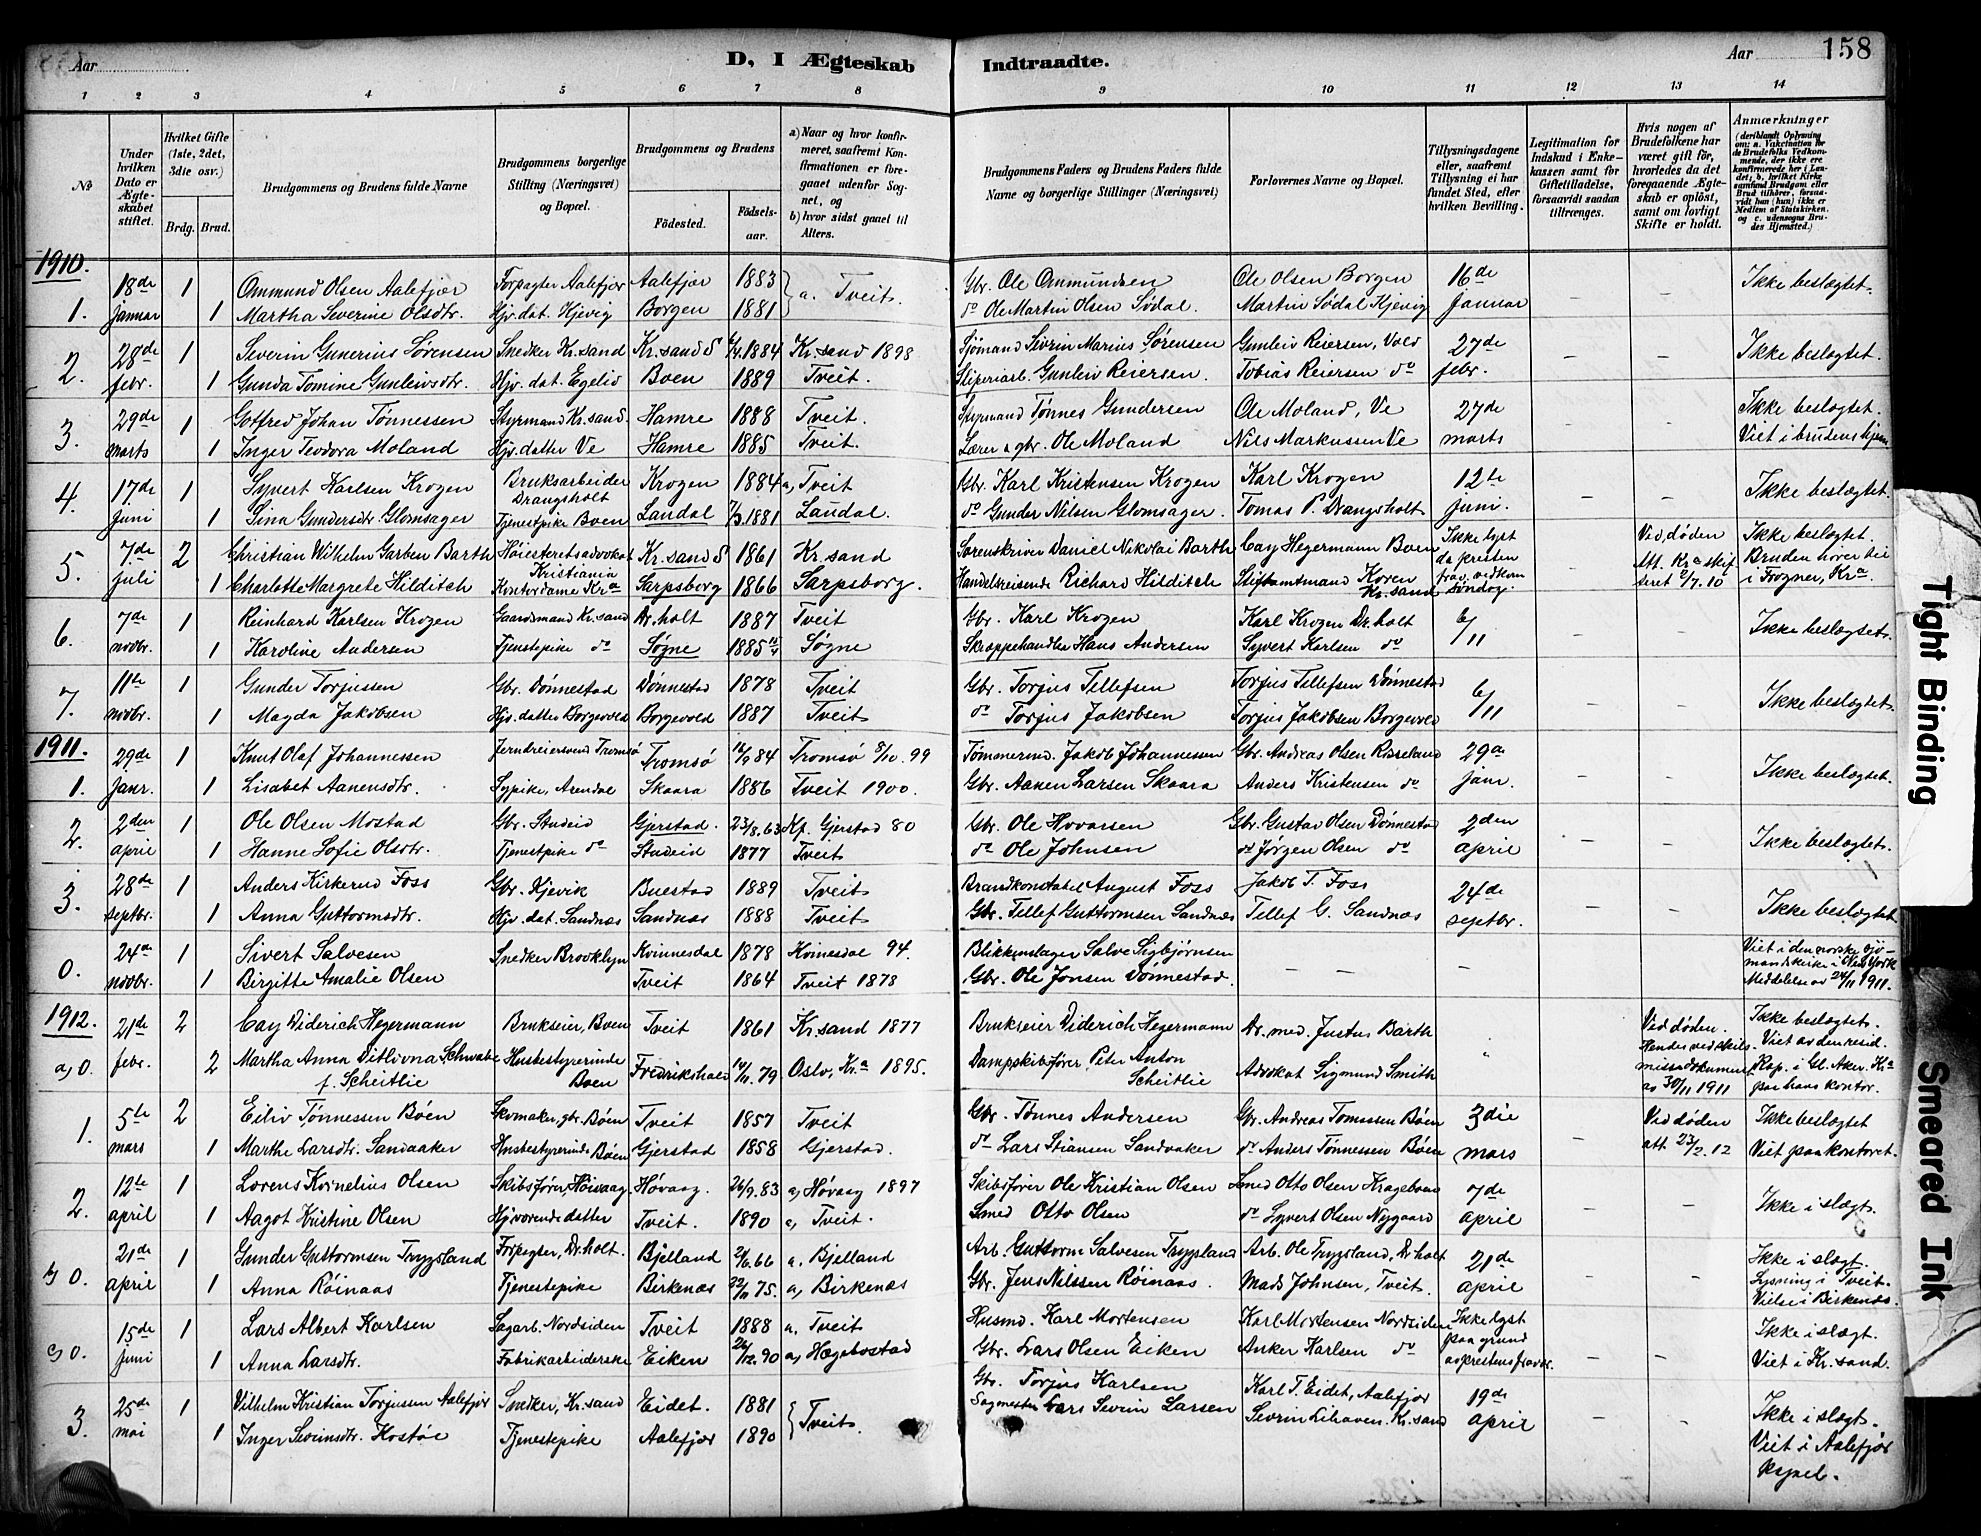 Aar
D, I Ægteskab Indtraadte.
Aar
158
1 2 3 4 5 6 7 8 9 10 11 12 13 14
No
Under hvilken Dato er Ægteskabet stiftet.
Hvilket Gifte (1ste, 2det, 3die osv.)
Brdg. Brud.
Brudgommens og Brudens fulde Navne
Brudgommens borgerlige Stilling (Næringsvei) og Bopæl.
Brudgommens og Brudens
Födested.
Födselsaar.
a) Naar og hvor konfirmeret, saafremt Konfirmationen er foregaaet udenfor Sognet, og
b) hvor sidst gaaet til Alters.
Brudgommens Faders og Brudens Faders fulde Navne og borgerlige Stillinger (Næringsvei)
Forlovernes Navne og Bopæl.
Tillysningsdagene eller, saafremt Tillysning ei har fundet Sted, efter hvilken Bevilling.
Legitimation for Indskud i Enkekassen samt for Giftetilladelse, forsaavidt saadan tiltrænges.
Hvis nogen af Brudefolkene har været gift för, hvorledes da det foregaaende Ægteskab er oplöst, samt om lovligt Skifte er holdt.
Anmærkninger
1910.
18de 1 Ommund Olsen Aalefjær Forpagter Aalefjær Aalefjær 1883 a. Tveit. Gbr. Ole Ommundsen Ole Olsen Borgen 16de Ikke beslægtet.
1. januar 1 Martha Severine Olsdtr. Hjv. dat. Kjevig Borgen 1881 do Ole Martin Olsen Sødal. Martin Sødal Kjevig januar
28de 1 Severin Gunerius Sørensen Snedker Kr.sand Kr.sand S 1884 Kr.sand 1898 Sjømand Sevrin Marius Sørensen Gunleiv Reiersen, Vold 27de Ikke beslægtet.
2. febr. 1 Gunda Tomine Gunleivsdtr. Hjv. dat. Egelid Boen 1889 Tveit. Gunleiv Reiersen. Tobias Reiersen do febr.
29de 1 Gotfred Johan Tønnessen Styrmand Kr.sand. Hamre 1888 Tveit. Styrmand Tønnes Gundersen Ole Moland, Ve 27de Ikke beslægtet.
3. marts 1 Inger Teodora Moland Hjv. datter Ve Hamre 1885 Tveit. Lærer & gbr. Ole Moland Nils Markussen Ve marts Viet i brudens hjem
17de 1 Syvert Karlsen Krogen Bruksarbeider Drangsholt Krogen 1884 a, Tveit Gbr. Karl Kristensen Krogen Karl Krogen 12te Ikke beslægtet.
4. juni 1 Sina Gundersdtr. Glomsager Tjenestpike Boen Landal 7/3 1881 Laudal. do Gunder Nilsen Glomsager. Tomas P. Drangsholt juni.
7de 2 Christian Wilhelm Garben Barth Høiesteretsadvokat Kristiania Kr.sand S 1861 Kr.sand Sorenskriver Daniel Nikolai Barth Cay Hegermann Boen Ikke lyst da presten Ved døden Ikke beslægtet.
5. juli 1 Charlotte Margrete Hilditch Kontordame Kra Sarpsborg 1866 Sarpsborg. Handelsreisende Richard Hilditch Stiftamtmand Koren Kr.sand frav. vedkom søndag. Att. Kra skifteret 2/7. 10 Bruden hører til i Frogner, Kra.
7de 1 Reinhard Karlsen Krogen Gaardsmand Kr.sand Dr.holt 1887 Tveit Gbr. Karl Krogen Karl Krogen Dr.holt 6/11 Ikke beslægtet.
6. novbr. 1 Karoline Andersen Tjenestpike do Søgne 1885 Søgne Skræppehandler Hans Andersen Syvert Karlsen do
11te 1 Gunder Torjussen Gbr. Dønnestad Dønnestad 1878 Tveit Gbr. Torjus Tellefsen Torjus Tellefsen Dønnestad 6/11 Ikke beslægtet.
7. novbr. 1 Magda Jakobsen Hjv. datter Borgevold Borgevold 1887 Tveit do Torjus Jakobsen Torjus Jakobsen Borgevold
1911.
29de 1 Knut Olaf Johannessen Jerndreiersvend Tromsø Tromsø 84 Tromsø 8/10. 99 Tømmermd. Jakob Johannessen Gbr. Andreas Olsen Risseland 29de Ikke beslægtet.
1. janr. 1 Lisabet Aanensdtr. Sypike, Arendal Skaara 1886 Tveit 1900. Gbr. Aanen Larsen Skaara Anders Kristensen do janr.
2den 1 Ole Olsen Mostad Gbr. Studeid Gjerstad. 23/8. 63 Kf. Gjerstad 80 Gbr. Ole Hovarsen Gbr. Gustav Olsen Dønnestad 2den Ikke beslægtet.
2. april 1 Hanne Sofie Olsdtr. Tjenestpike do Studeid 1877 Tveit do Ole Johnsen do Jørgen Olsen do april
28de 1 Anders Kirkerud Foss Gbr. Kjevik Buestad 1889 Tveit Brandkonstabel August Foss Jakob T. Foss 24de Ikke beslægtet
3. septbr. 1 Anna Guttormsdtr. Hjv. dat. Sandnæs Sandnæs 1888 Tveit Gbr. Tellef Guttormsen Sandnæs Tellef G. Sandnæs septbr.
24de 1 Sivert Salvesen Snedker Brooklyn Kvinnesdal 1878 Kvinesdal 94. Blikkenslager Salve Sigbjørnsen Viet i den norske sjømandskirke i New York
0. novbr. 1 Birgitte Amalie Olsen Tveit 1864 Tveit 1878 Gbr. Ole Jonsen Dønnestad. Meddelelse av 24/11 1911.
1912.
21de 2 Cay Diderich Hegermann Brukseier, Boen Tveit 1861 Kr.sand 1877 Brukseier Diderich Hegermann Dr. med. Justus Barth Ved døden. Ikke beslægtet.
a, 0. febr. 2 Martha Anna Ditlovna Schwabe f. Scheitlie Husbestyrerinde Boen Fredrikshald 14/11. 79 Oslo, Kra 1895. Dampskibsfører Peter Anton Scheitlie Advokat Sigmund Smith Hendes ved skilsmissedokument av 30/11 1911 Viet av den resid. Kap. i Gl. Aker. Kra paa hans kontor.
5te 2 Eiliv Tønnessen Bøen Skomaker, gbr. Bøen Tveit 1857 Tveit Gbr. Tønnes Andersen Gbr. Andreas Tomessen Bøen 3die Ved døden Ikke beslægtet
1. mars 1 Marthe Larsdtr. Sandaaker Husbestyrerinde Bøen Gjerstad 1858 Gjerstad. do Lars Stiansen Sandaaker do Anders Tønnessen Bøen mars att. 23/2. 12 Viet paa kontoret.
12te 1 Lorens Kornelius Olsen Skibsfører, Høivaag Høvaag. 26/9. 83 a, Høvaag 1897 Skibsfører Ole Kristian Olsen Smed Otto Olsen Krageboen 7de Ikke i slægt.
2. april 1 Aagot Kristine Olsen Hj.værende datter Tveit. 1890 a, Tveit. Smed Otto Olsen do Syvert Olsen Nygaard april
21de 1 Gunder Guttormsen Trygsland Forpagter, Dr.holt. Bjelland 21/6. 66 a, Bjelland Arb. Guttorm Salvesen Trygsland Arb. Ole Trygsland, Dr.holt 21de Ikke i slægt.
b, 0. april 1 Anna Røinaas Tjenestepike Birkenæs 22/11 75. a, Birkenæs Gbr. Jens Nilssen Røinaas. Mads Johnsen, Tveit. april Lysning i Tveit. Vielse i Birkenæs.
15de 1 Lars Albert Karlsen Sagarb. Nordsiden Tveit 1888 a, Tveit Husmd. Karl Mortensen Karl Mortensen Nordsiden Ikke lyst paa grund Ikke i slægt.
c, 0. juni 1 Anna Larsdtr. Fabrikarbeiderske Eiken 26/12. 90 a, Hægebostad Gbr. Lars Olsen Eiken Anker Karlsen do av prestens fravær. Viet i Kr.sand.
25de 1 Vilhelm Kristian Torjussen Aalefjær Snedker, Kr.sand Eidet. 1881 Tveit. Gbr. Torjus Karlsen Karl T. Eidet, Aalefjær 19de Ikke i slægt.
3. mai 1 Inger Sevrinsdtr. Kostøe Tjenestepike Aalefjær 1890 Sagmester Lars Sevrin Larsen Sevrin Lihaven. Kr.sand april Viet i Aalefjær kapel.
Tight Binding
Smeared Ink